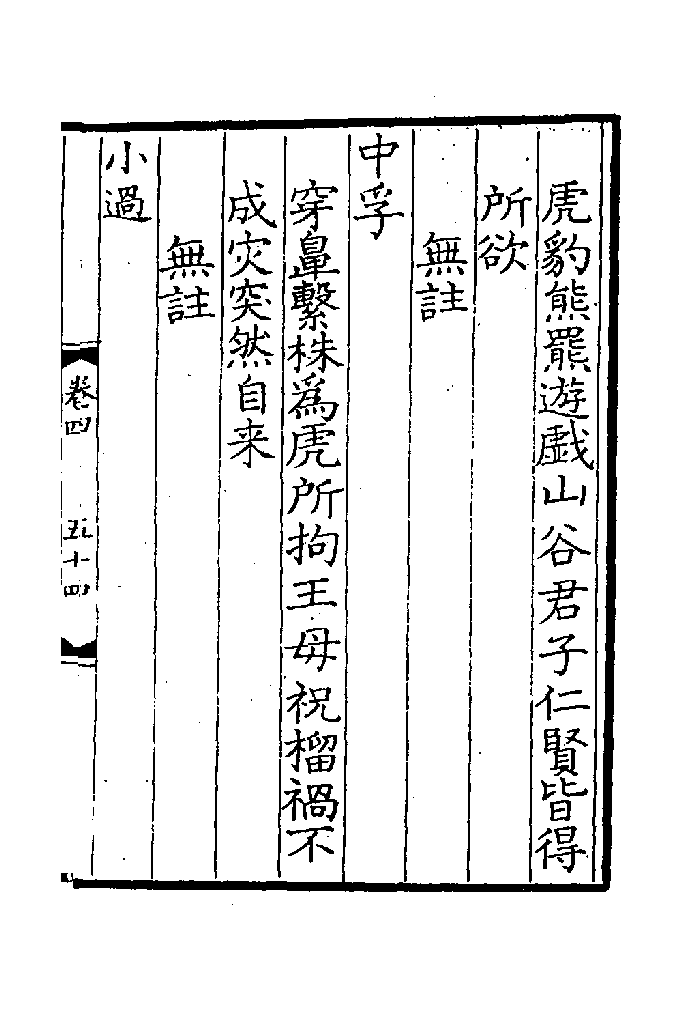 虎豹熊羆遊戯山谷君子仁賢皆得
所欲
無註
中孚
穿鼻繫株爲虎所拘王母祝榴禍不
成灾突然自来
無註
小過
卷四　五十四